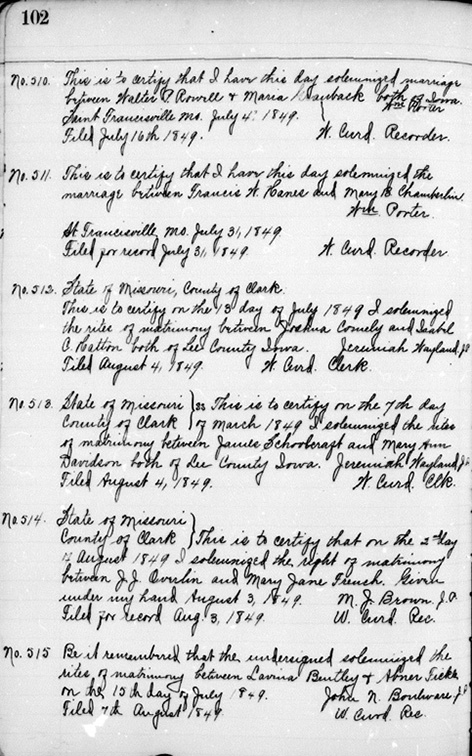 102
No. 510. This is to certify that I have this day solemnized marriage
between Walter P. Rowell & Maria both of Iowa.
Wm Porter
Saint Francisville Mo. July 4. 1849.
Filed July 16th 1849. W. Curd Recorder.
No. 511. This is to certify that I have this day solemnized the
marriage between Francis W. Hanes and Mary B Chamberlin
Wm Porter.
St Francisville, Mo. July 31, 1849
Filed for record July 31, 1849. W. Curd Recorder
No. 512. State of Missouri, County of Clark.
This is to certify on the 13 day of July 1849 I solemnized
the rites of matrimony between Joshua Comely and Isabel
C. Hatton both of Lee County Iowa. Jeremiah Wayland, J.P.
Filed August 4, 1849. W. Curd. Clerk.
No. 513. State of Missouri } ss This is to certify on the 7th day
County of Clark } of March 1849 I solemnized the rites
of matrimony between James Schoolcraft and Mary Ann
Davidson both of Lee County Iowa. Jeremiah Wayland, J.P.
Filed August 4, 1849. W. Curd. Clk.
No. 514. State of Missouri }
County of Clark } This is to certify that on the 2nd day
of August 1849 I solemnized the right of matrimony
between J. J. Overlin and Mary Jane French. Given
under my hand August 3, 1849. M. J. Brown J.P.
Filed for record Aug. 3, 1849. W. Curd Rec.
No. 515 Be it remembered that the undersigned solemnized the
rites of matrimony between Lavina Bentley & Abner Tickle
on the 15th day of July 1849. John N. Boulware J.P.
Filed 7th August 1849 W. Curd Rec.